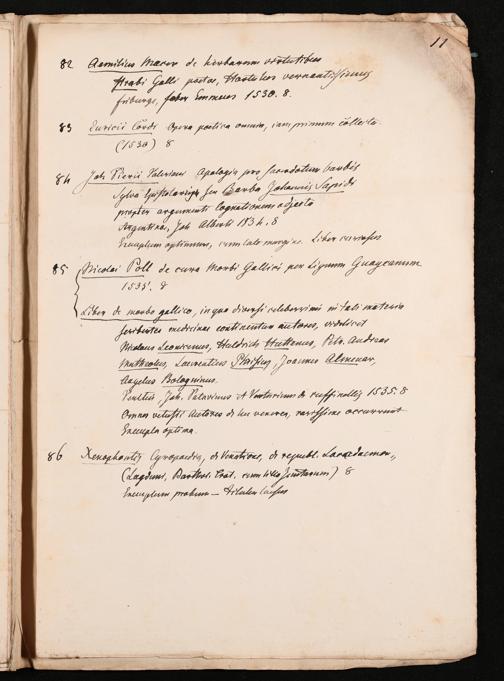 11
82 Aemilius Macer de herbarum virtutibus
Strabi Galli poetae, Hortulus vernantissimus
friburgi, faber Emmeus 1530. 8.
83 Euricii Cordi Opera poetica omnia, iam primum collecta
(1530) 8
84 Joh Pierii Valeriani Apologia pro sacerdotum barbis
Sylva seu Barba Johannis Sapidi
propter argumenti cognationem adjecta
Argentinae, Joh Alberti 1534. 8
Exemplum optimum, cum lato margine. Liber
85 Nicolai Poll de cura Morbi Gallici per Lignum Guaycanum
1535. 8
Liber de morbo gallico, in quo diversi celeberrimi in tali materia
scribentes medicinae continentur autores, videlicet
Nicolaus Leonicenus, Huldrich Huttenus, Petr. Andreas
Matheolus, Laurentius Phrisius, Joannes Almenar,
Angelus Bologninus.
Venetiis Joh. Patavinus et Venturinus de ruffinellis 1535. 8
Omnes autores de lue venerea, rarissime occurrunt
Exempla optima.
86 Xenophontis Cyropaedia, de Venatione, de republ. Lacedaemon„
(Lugduni, Barthol. Trot. ) 8
Exemplum probum —